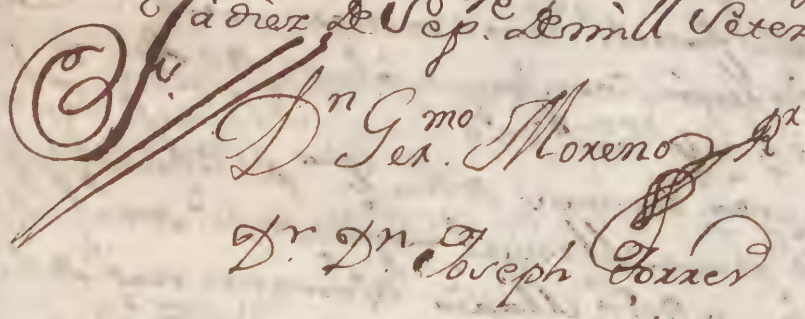 à diez de Sep.re de mill Setez
D.n Ger.mo Moreno
D.r D.n Joseph Torres